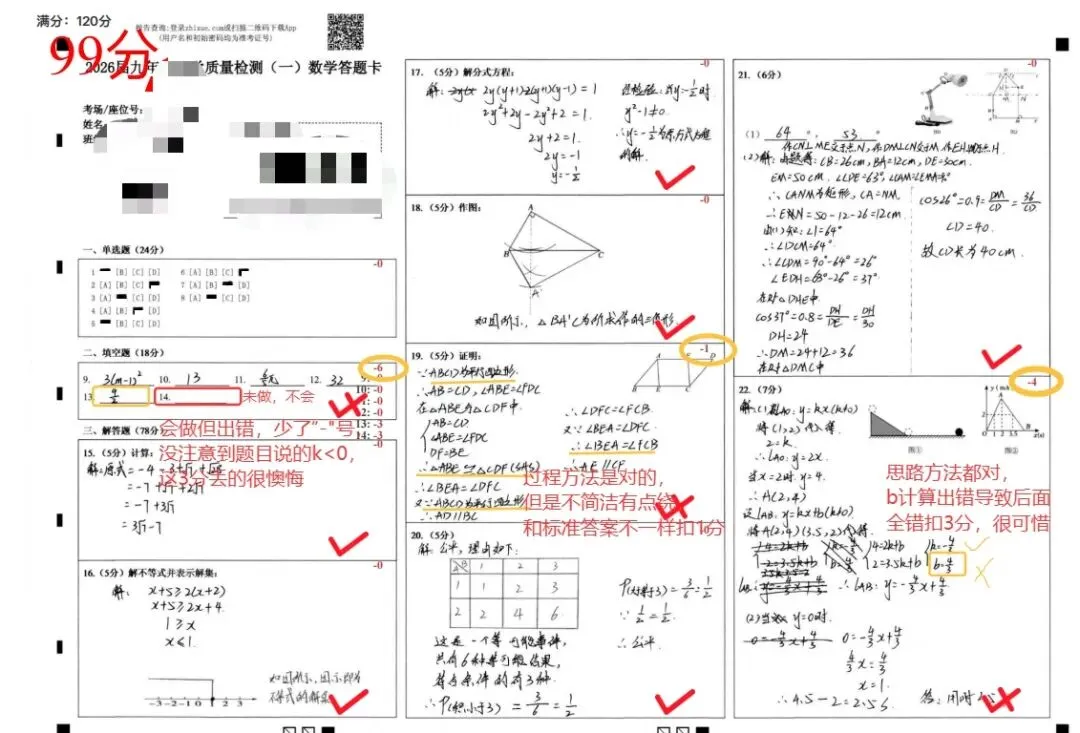 满分：120分
报告查询：登录zhixue.com或扫描二维码下载App
(用户名和初始密码均为准考证号)
99分
2026届九年 质量检测（一）数学答题卡
考场/座位号：
姓名
班
一、单选题（24分）
-0
1 [B] [C] [D] 6 [A] [B] [C]
2 [A] [B] [C] 7 [A] [B] [D]
3 [A] [C] [D] 8 [A] [C] [D]
4 [A] [B] [D]
5 [B] [C] [D]
二、填空题（18分）
-6
9. 3(m-1)² 10. 13 11. 12. 32
13. 9/2 14. 未做，不会
10: -0
11: -0
12: -0
13: -3
14: -3
会做但出错，少了"-"号
没注意到题目说的k<0，
这3分丢的很懊悔
三、解答题（78分）
15.（5分）计算：
-0
=-7+3√
=3√-7
16.（5分）解不等式并表示解集：
-0
解：x+5≥2(x+2)
x+5≥2x+4
1≥x
x≤1.
如图所示，图示即为
不等式的解集
-3 -2 -1 0 1 2 3
17.（5分）解分式方程：
-0
解：2y(y+1)-2(y+1)(y-1)=1
2y²+2y-2y²+2=1.
2y+2=1.
2y=-1
y=-1/2
经检验：当y=-1/2时
y²-1≠0
∴y=-1/2为原分式方程
的解.
18.（5分）作图：
-0
A
B
C
A'
如图所示，△BA'C为所求作的三角形
19.（5分）证明：
-1
∵ABCD为平行四边形
∴AB=CD，∠ABE=∠FDC
在△ABE与△CDF中
AB=CD
∠ABE=∠FDC
DF=BE
∴△ABE≌△CDF(SAS)
∴∠BEA=∠DFC
又∵ABCD为平行四边形
∴AD∥BC
∴∠DFC=∠FCB
又∵∠BEA=∠DFC
∴∠BEA=∠FCB
∴AE∥CF
过程方法是对的，
但是不简洁有点绕
和标准答案不一样扣1分
20.（5分）
-0
解：公平，理由如下：
1 2 3
1 1 2 3
2 2 4 6
这是一个等可能事件，
共有6种等可能结果，
符合条件的有3种
∴P(积小于3)=3/6=1/2
=3/6=1/2
∵1/2=1/2
∴公平
21.（6分）
-0
(1) 64 °， 53 °
作CN⊥ME交于点N，作DM⊥CN交于M，作EH
(2)解：由题意得：CB=26cm，BA=12cm，DE=30cm.
EM=50cm.
∴CANM为矩形，CA=NM.
=50-12-26=12cm.
由(1)知：∠1=64°
∴∠DCM=64°.
∴∠CDM=90°-64°=26°
∠EDH=63°-26°=37°
在Rt△DHE中
cos37°=0.8=DH/DE=DH/30
DH=24
∴DM=24+12=36
在Rt△DMC中
cos26°=0.9=DM/CD=36/CD
CD=40.
故CD长为40cm.
22.（7分）
-4
图①
图②
y(m/s)
x(s)
A
B
0 1 2 3.5
将(1,2)代入得
2=k
∴AO：y=2x.
当x=2时，y=4.
∴A(2,4)
设AB：y=kx+b(k≠0)
将A(2,4)(3.5,2)代入得
4=2k+b
2=3.5k+b
k=-4/3
b=4/3
∴AB：y=-4/3x+4/3
(2)当 y=0时.
0=-4/3x+4/3
4/3x=4/3
x=1.
∴4.5-2=2.5s
答：用时2.5
思路方法都对，
b计算出错导致后面
全错扣3分，很可惜